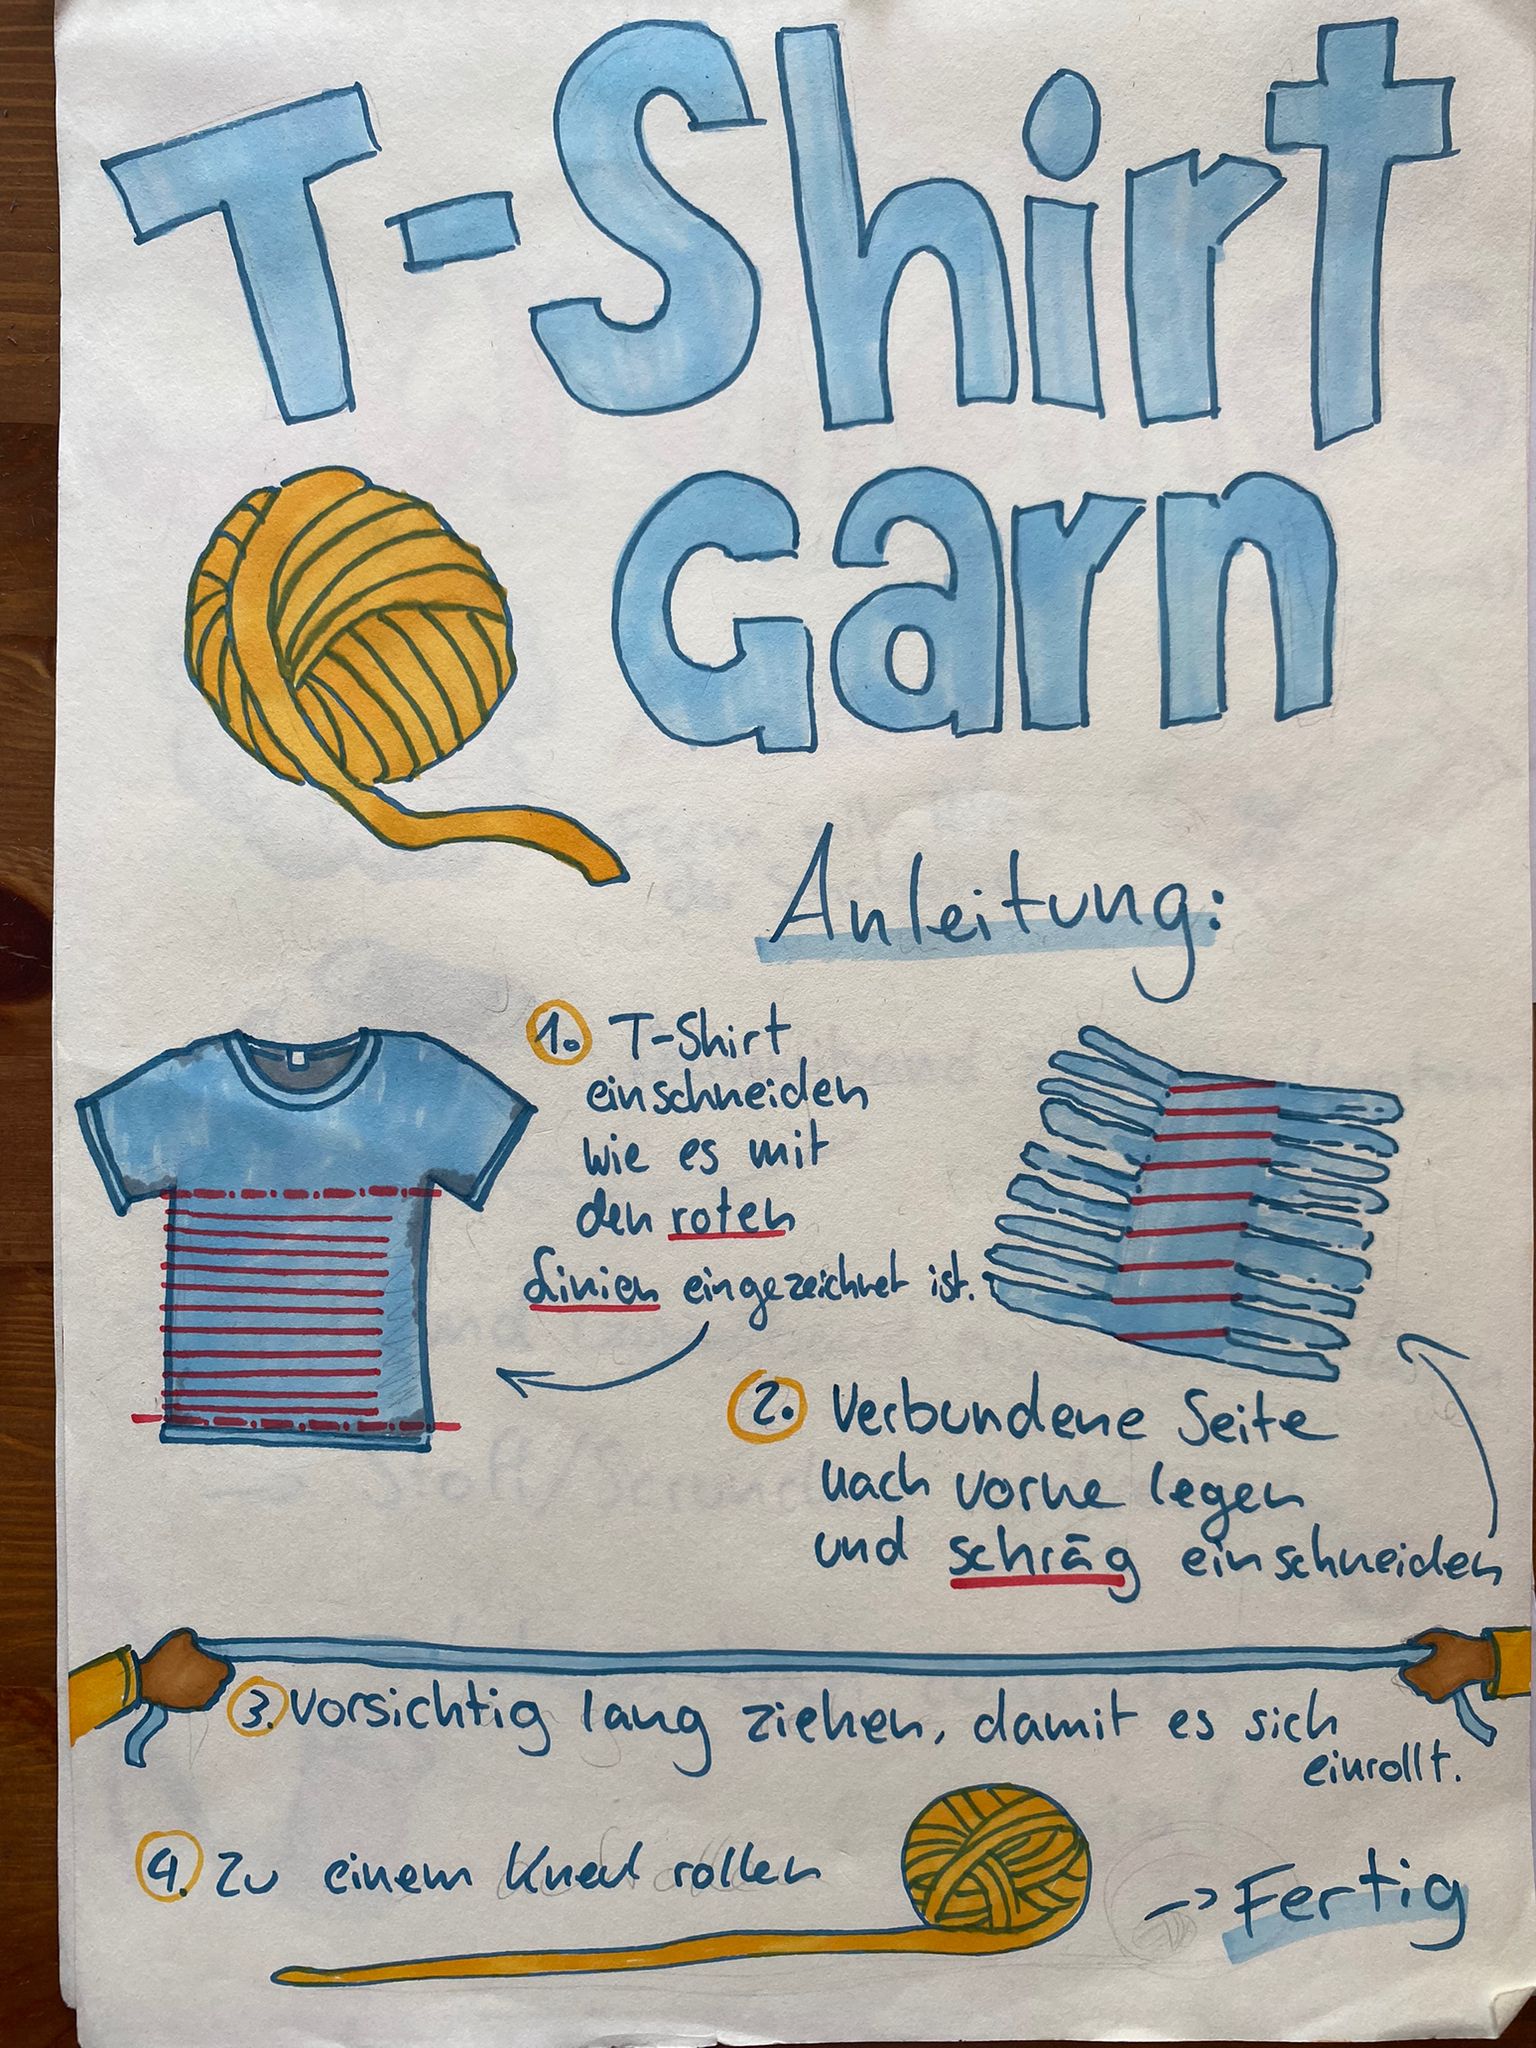 T-Shirt
Garn
Anleitung:
1. T-Shirt
einschneiden
wie es mit
den roten
Linien eingezeichnet ist.
2. Verbundene Seite
nach vorne legen
und schräg einschneiden
3. Vorsichtig lang ziehen, damit es sich
einrollt.
4. Zu einem rollen
-> Fertig